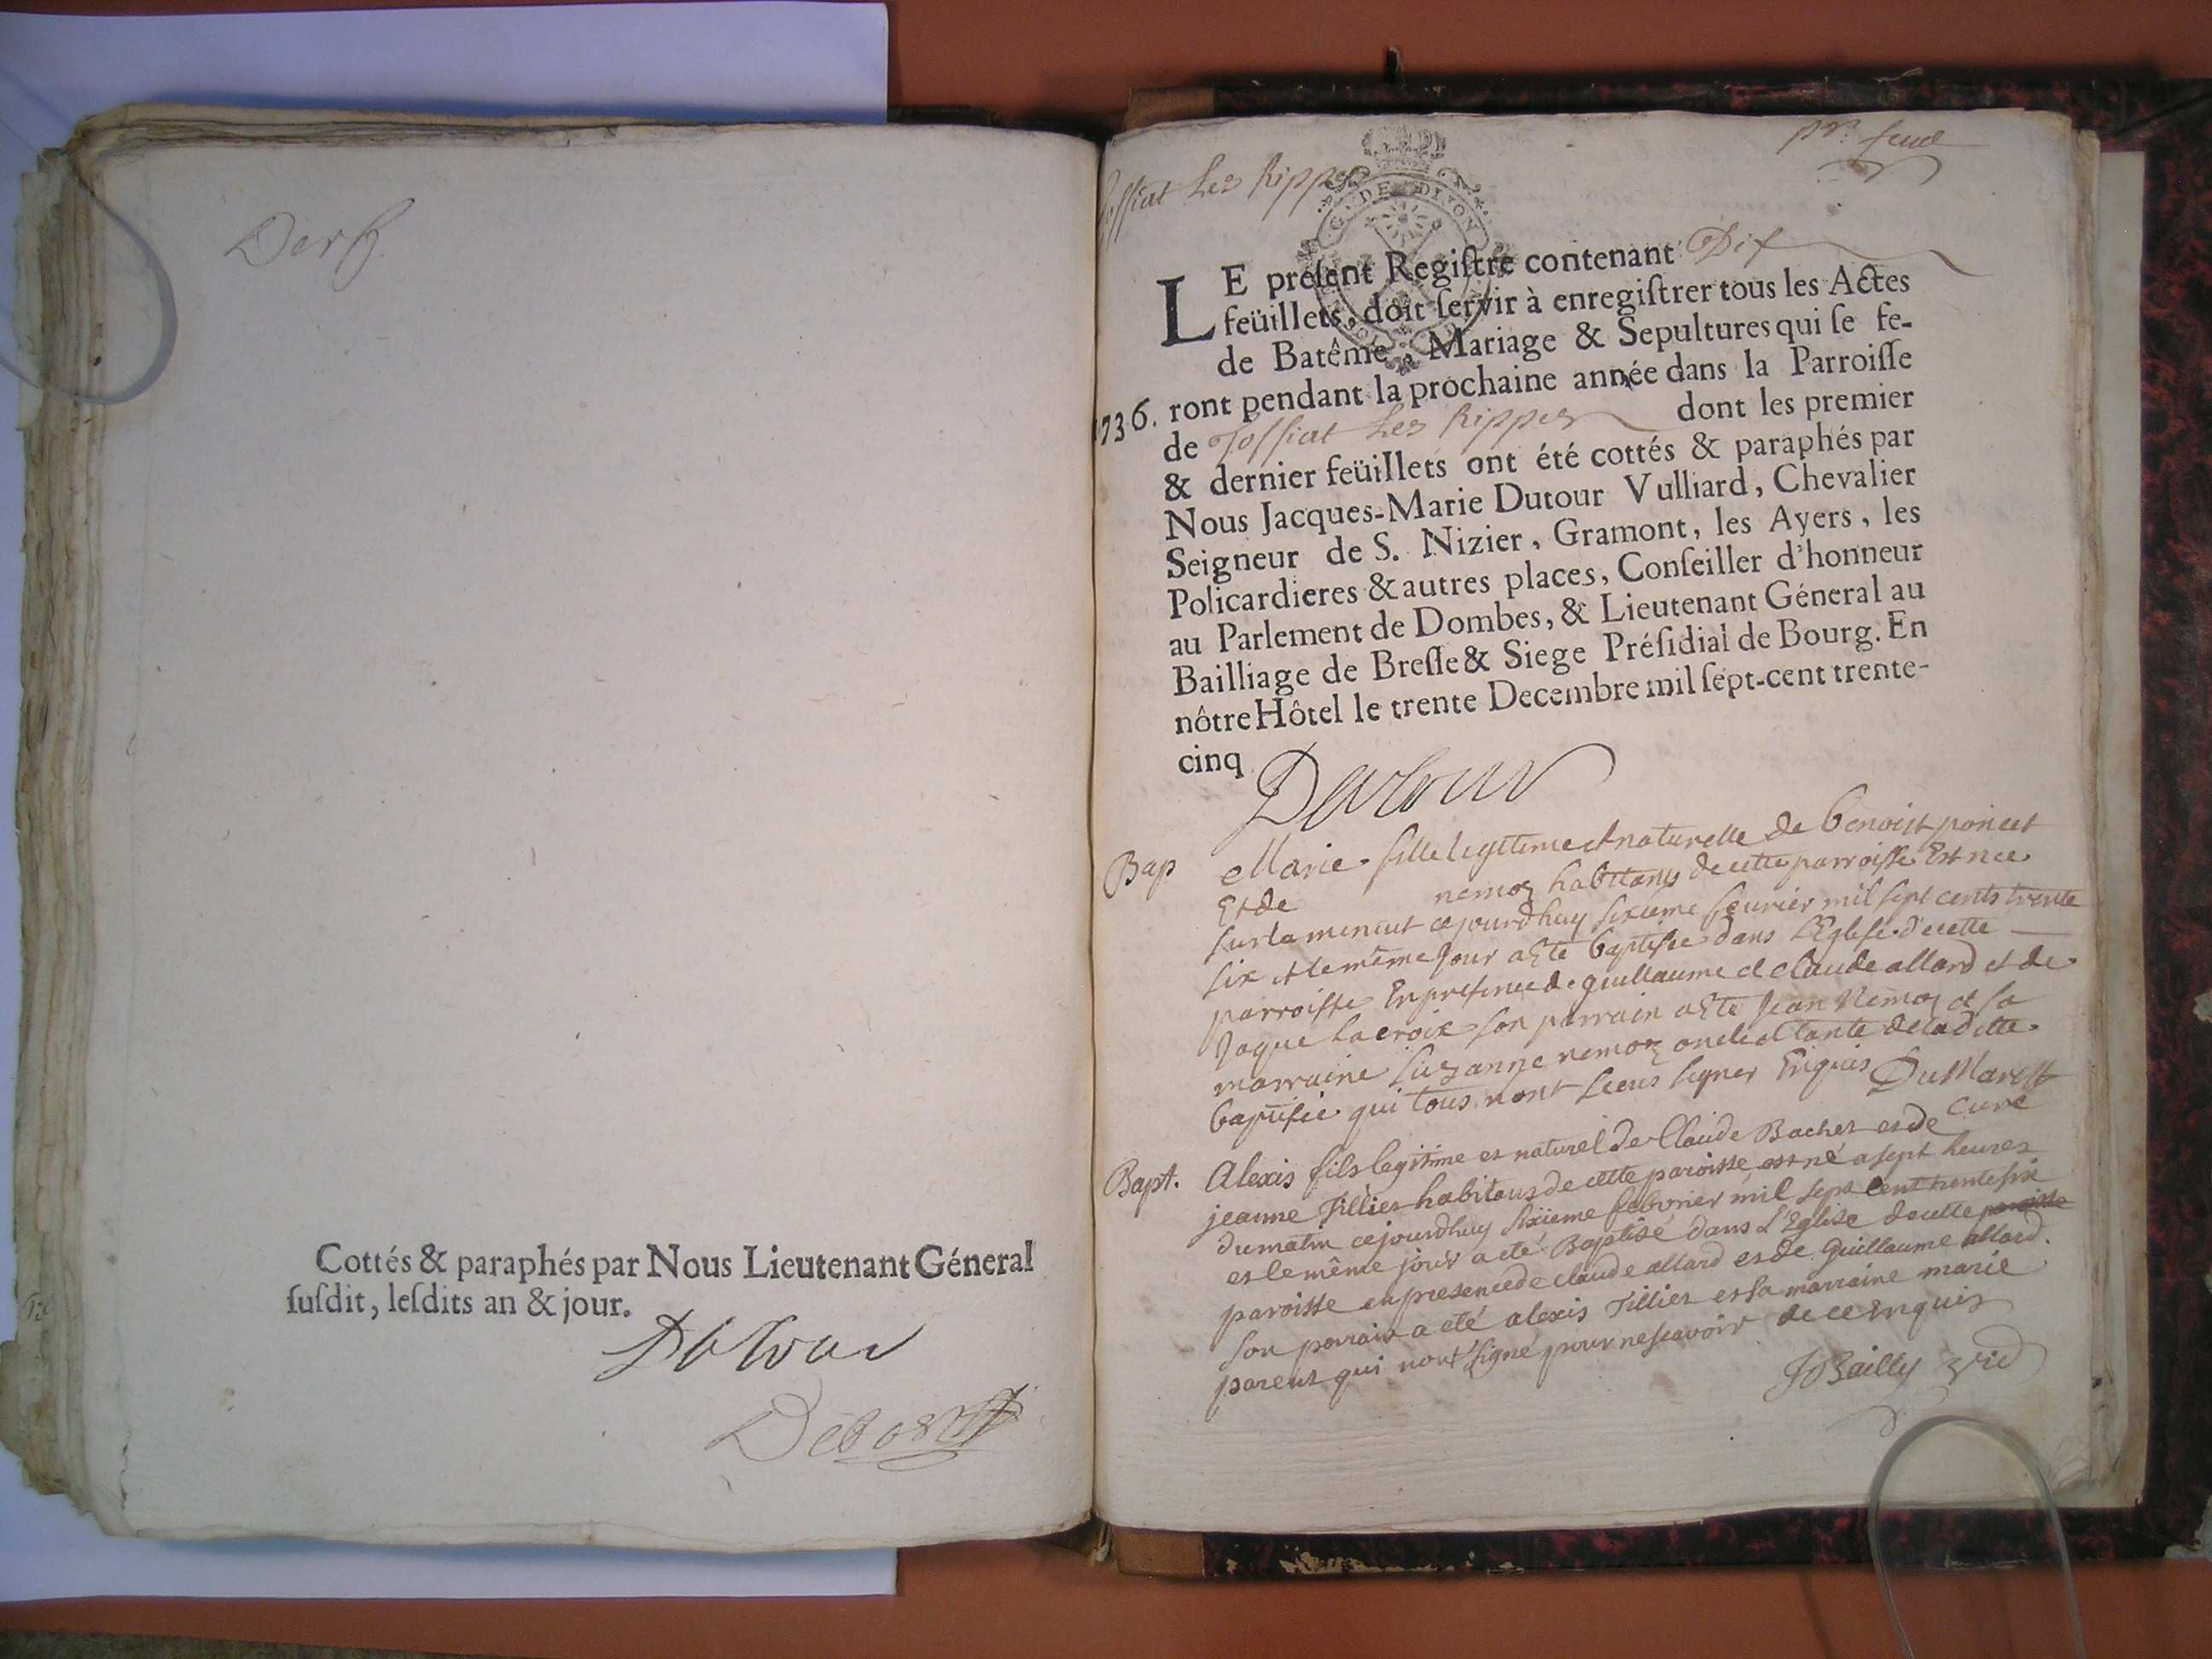 Cottés & paraphés par Nous Lieutenant Géneral
ſuſdit, leſdits an & jour.
Dutour
Joffiat Les Rippes
pr. feuil
G. DE DIJON
LE preſent Regiſtre contenant Dix
feüillets, doit ſervir à enregiſtrer tous les Actes
de Batême, Mariage & Sepultures qui ſe fe-
1736. ront pendant la prochaine année dans la Parroiſſe
de Joffiat Les Rippes dont les premier
& dernier feüillets ont été cottés & paraphés par
Nous Jacques-Marie Dutour Vulliard, Chevalier
Seigneur de S. Nizier, Gramont, les Ayers, les
Policardieres & autres places, Conſeiller d'honneur
au Parlement de Dombes, & Lieutenant Géneral au
Bailliage de Breſſe & Siege Préſidial de Bourg. En
nôtre Hôtel le trente Decembre mil ſept-cent trente-
cinq
Dutour
Bap Marie fille legitime et naturelle de benoist poncet
Et de nemoz habitans de cette parroisse Est nee
sur la minuit cejourdhuy sixieme feurier mil sept cents trente
six et le même jour a Eté baptisée dans L'Eglise de cette
parroisse En presence de guillaume et claude allard et de
Jaque Lacroix son parrain a Eté Jean Nemoz et sa
marraine Suzanne nemoz oncle et tante de la ditte
baptisée qui tous nont sceus signer Enquis DuMarest
curé
Bapt. Alexis fils legitime et naturel de Claude Bachet et de
jeanne Tillier habitans de cette paroisse est né a sept heures
du matin cejourdhuy sixieme febvrier mil sept cent trente six
et le même jour a eté Baptisé dans L'Eglise de cette paroisse
paroisse en presence de claude allard et de Guillaume allard.
Son parrain a eté alexis Tillier et sa marraine marie
parent qui nont signé pour ne scavoir de ce Enquis
JBailly vic